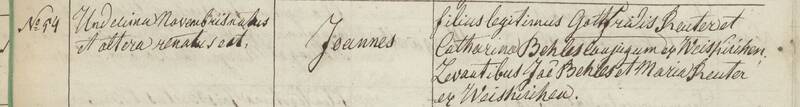 No 54
Undecima Novembris natus
et altera renatus est.
Joannes
filius legitimus Gottfridis Reuter et
Catharina Behles conjugum ex Weiskirchen,
Levantibus Jac Behles et Maria Reuter
ex Weiskirchen.